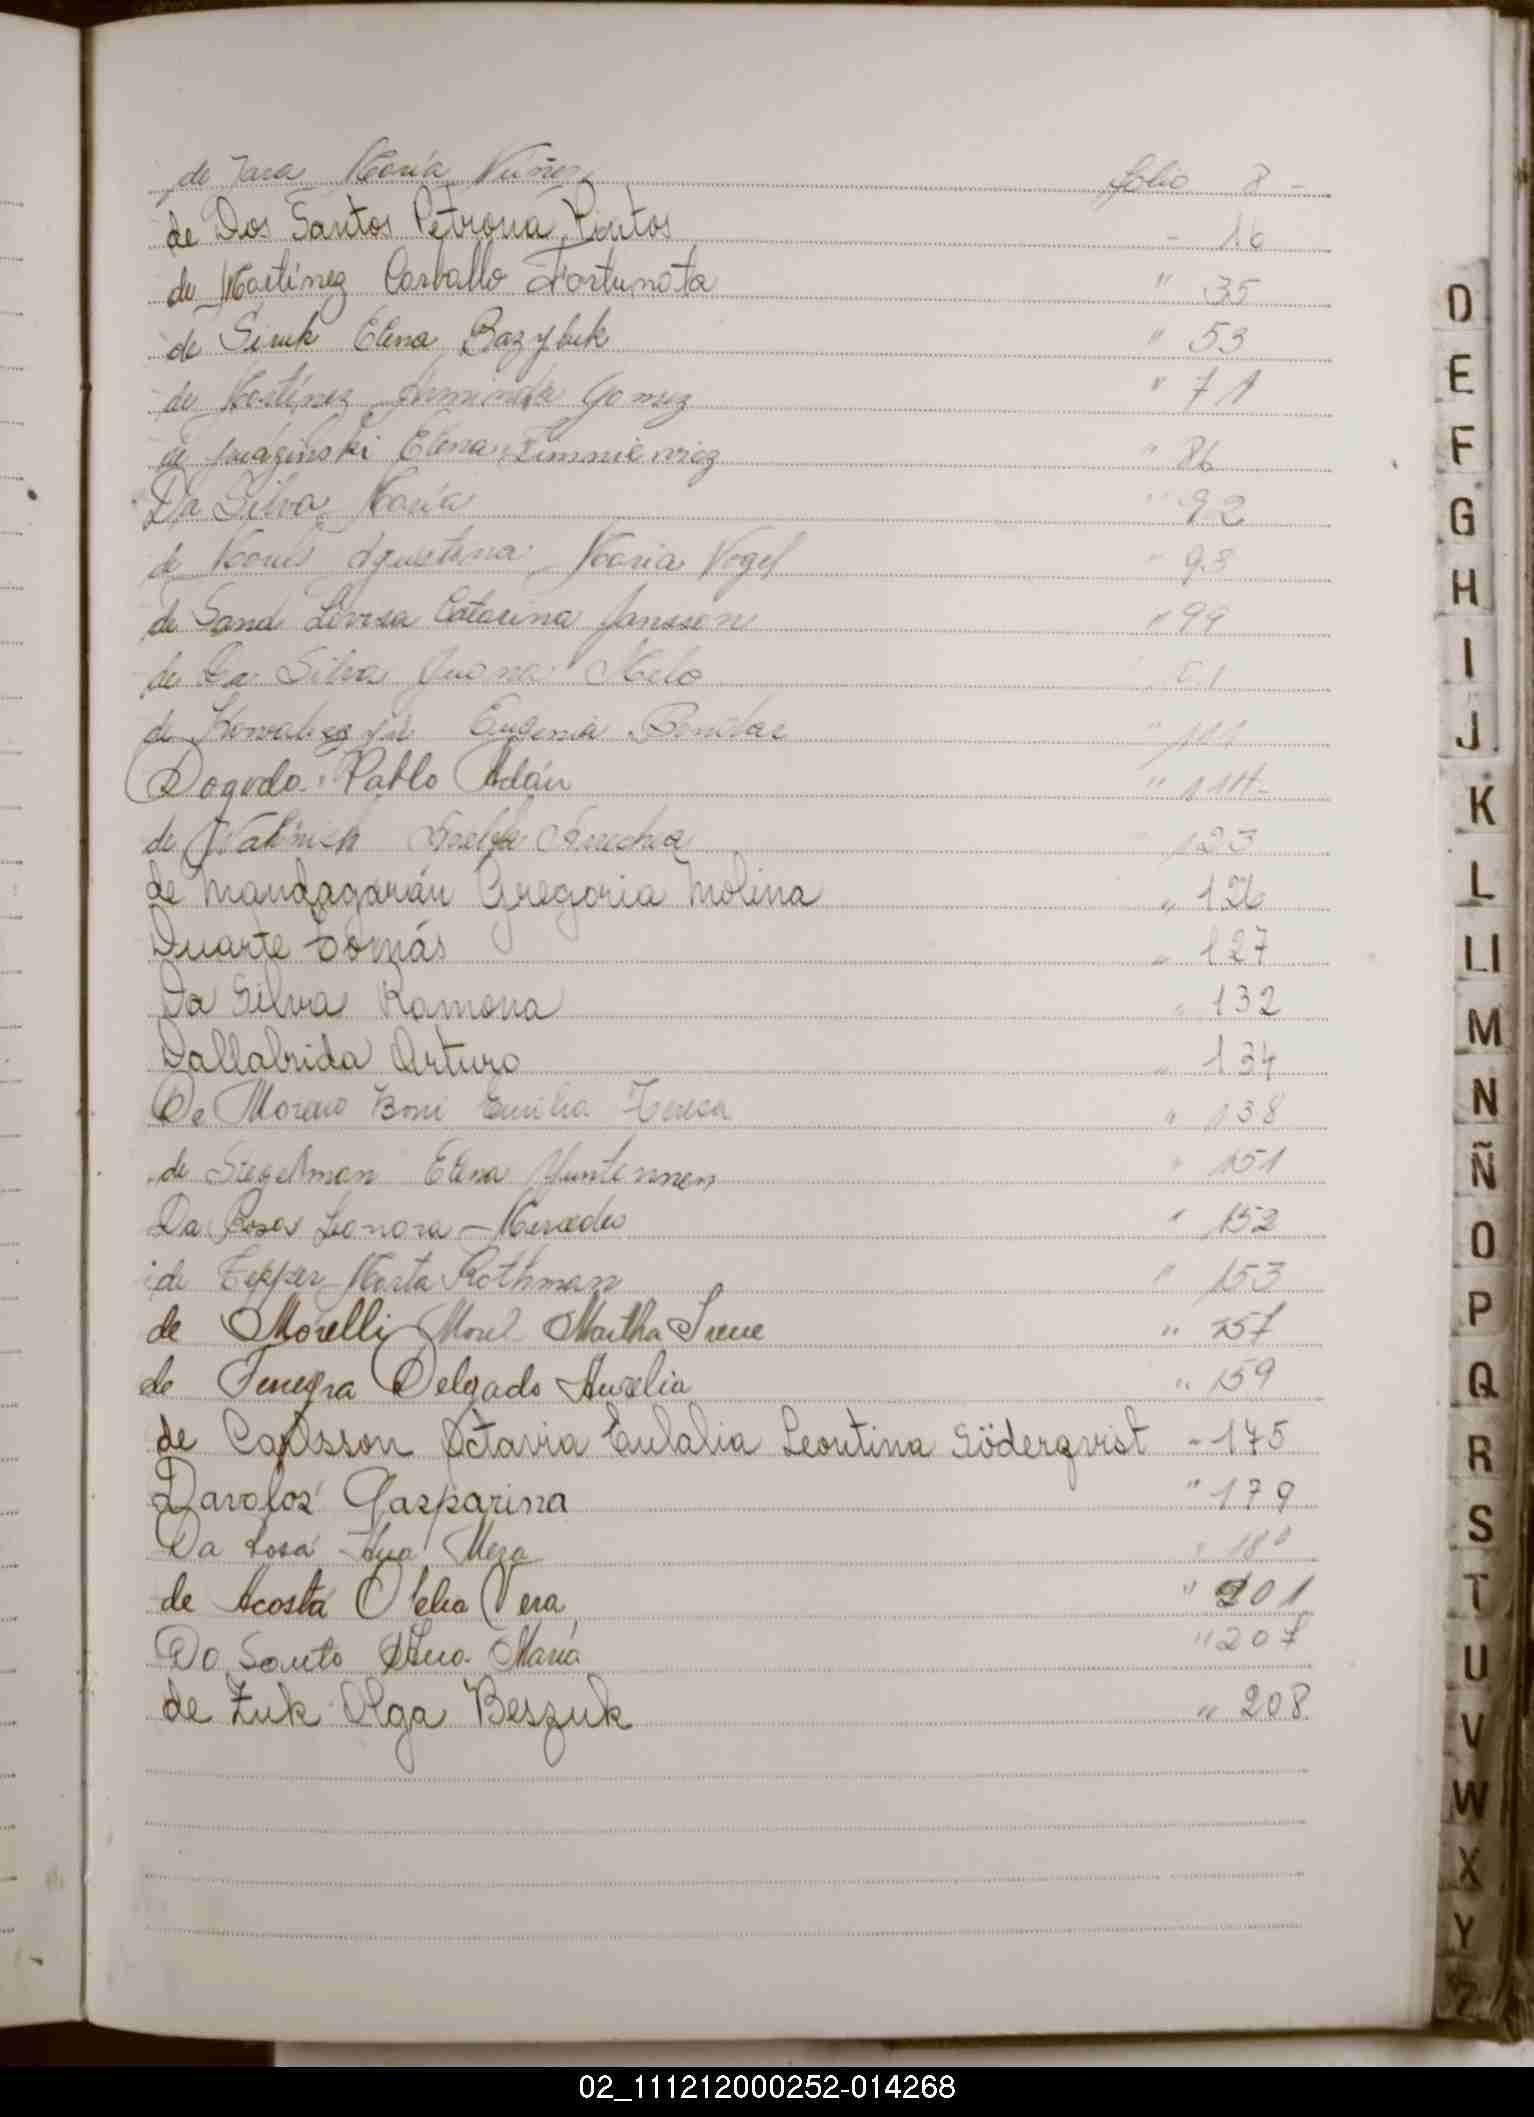 de Jara María Núñez folio 8 -
de Dos Santos Petrona Pintos - 16
de Martínez Carballo Fortunata " 35
de Siruk Elena Bazyluk " 53
de Martínez Arminda Gomez " 71
de Elena " 86
Da Silva María " 92
de Agustina María Vogel " 93
de Sand Linnea Catarina Jansson " 99
de Da Silva Juana Melo
de Eugenia " 111
Dogodo Pablo Adán " 114-
de 123
de Mandagarán Gregoria Molina " 126
Duarte Tomás " 127
Da Silva Ramona " 132
Dallabrida Arturo " 134
De Moreno Boni Emilia Teresa " 138
de Stegelman Elena " 151
Da Rosa Leonora Mercedes " 152
de Tepper Marta Rothman " 153
de Morelli Morel Martha Irene " 157
de Delgado Aurelia " 159
de Carlsson Octavia Eulalia Leontina Söderqvist - 175
Davalos Gasparina " 179
Da Rosa Ana Meza " 180
de Acosta Otelia Vera " 201
Do Santo Ana María " 207
de Zuk Olga Beszuk " 208
D
E
F
G
H
I
J
K
L
Ll
M
N
Ñ
O
P
Q
R
S
T
U
V
W
X
Y
Z
02_111212000252-014268